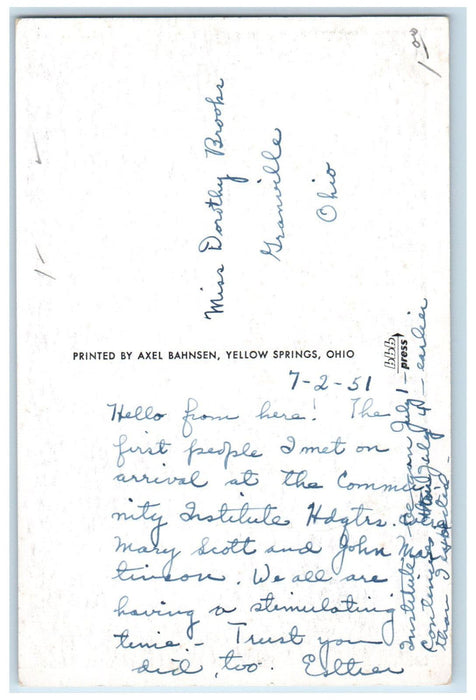 1.00
Miss Dorothy Brooks
Granville
Ohio
PRINTED BY AXEL BAHNSEN, YELLOW SPRINGS, OHIO
bbb press
7-2-51
Hello from here! The
first people I met on
arrival at the Commu
nity Institute Hdqtrs.
Mary Scott and John Mar
tinson. We all are
having a stimulating
time. - Trust you
did, too. Esther
Institute began July 1 -
Continues July 4 - earlier
than I expected -